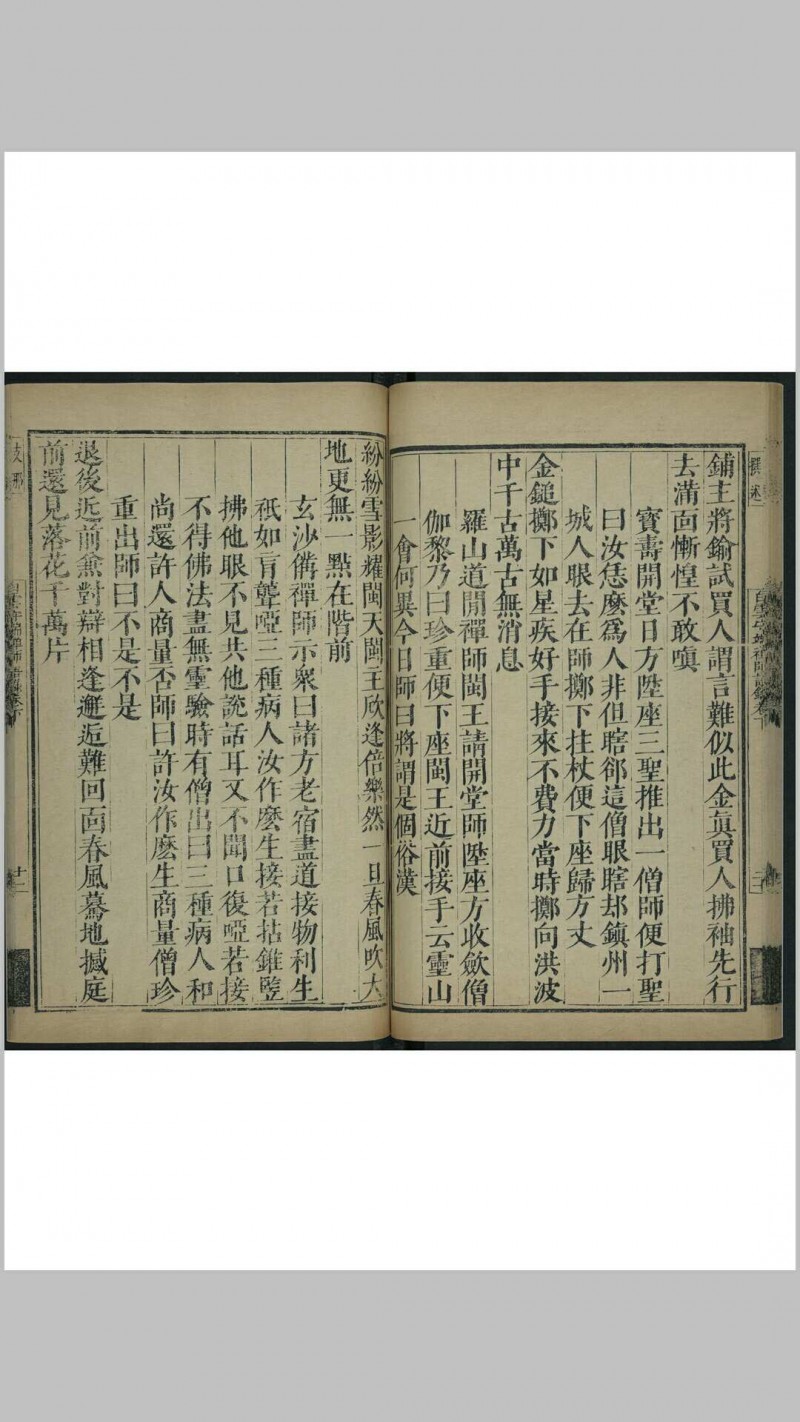 鋪主將鍮試買人謂言難似此金眞買人拂袖先行
去滿面慚惶不敢嗔
寶壽開堂日方陞座三聖推出一僧師便打聖
曰汝恁麽爲人非但瞎郤這僧眼瞎却鎮州一
城人眼去在師擲下拄杖便下座歸方丈
金鎚擲下如星疾好手接來不費力當時擲向洪波
中千古萬古無消息
羅山道閒禪師閩王請開堂師陞座方收斂僧
伽黎乃曰珍重便下座閩王近前接手云靈山
一會何異今日師曰將謂是個俗漢
紛紛雪影耀閩天閩王欣逢倍樂然一旦春風吹大
地更無一點在階前
玄沙備禪師示衆曰諸方老宿盡道接物利生
祇如盲聾啞三種病人汝作麽生接若拈錐豎
拂他眼不見共他說話耳又不聞口復啞若接
不得佛法盡無靈驗時有僧出曰三種病人和
尚還許人商量否師曰許汝作麽生商量僧珍
重出師曰不是不是
退後近前兼對辯相逢邂逅難回面春風驀地撼庭
前還見落花千萬片